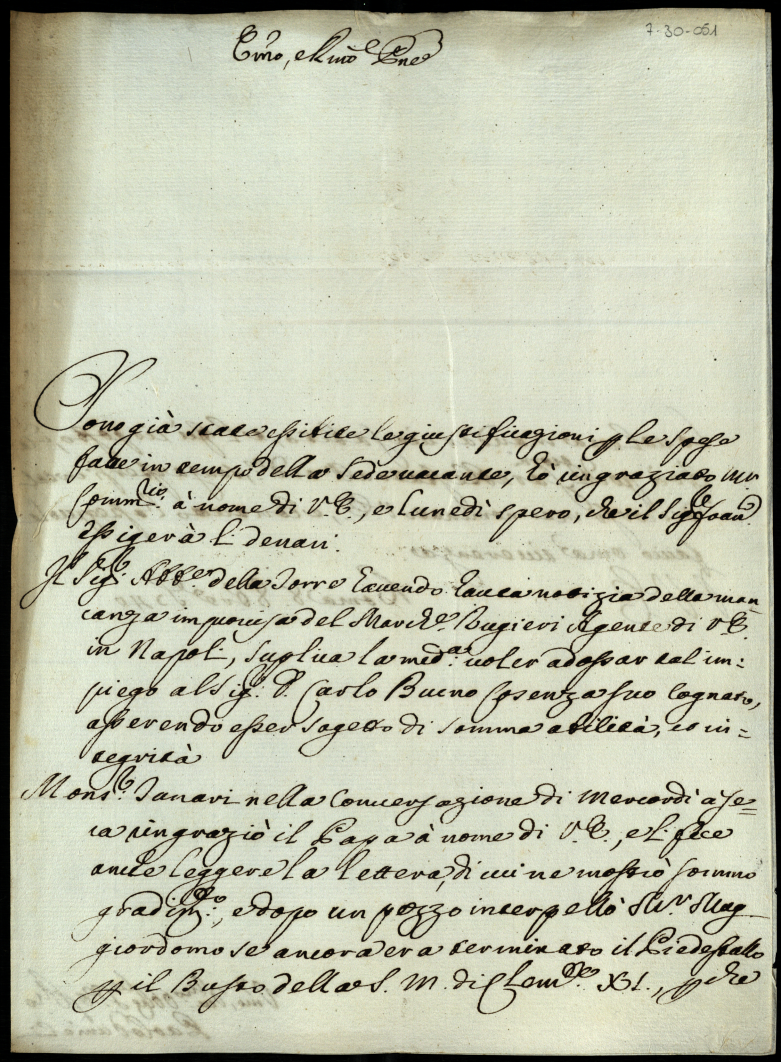 7-30-051
Em̃o, e Rm̃o Pñe
Sono già state esibite le giustificazioni p le spese
fatte in tempo della Sede vacante, hò ringraziato Mr
Comm.rio à nome di V. E., e lunedì spero, che il Sig.
esigerà li denari.
Il Sig.r Abb.e della Torre havendo hauta notizia della man
canza improvisa del March.e Rugieri Agente di V. E.
in Napoli, suplica la med.a voler adossar tal im=
piego al Sig.r D. Carlo Bueno Cosenza suo Cognato,
asserendo esser sogetto di somma abilità, et in=
tegrità
Mons.r Tanari nella Conversazione di Mercordì a se=
ra ringraziò il Papa à nome di V. E., e li fece
anche leggere la lettera, di cui ne mostrò sommo
gradim.to, e dopo un pezzo interpellò Mr Mag
giordomo se ancora era terminato il Piedestallo
p il Busto della S. M. di Clem.te XI., p che